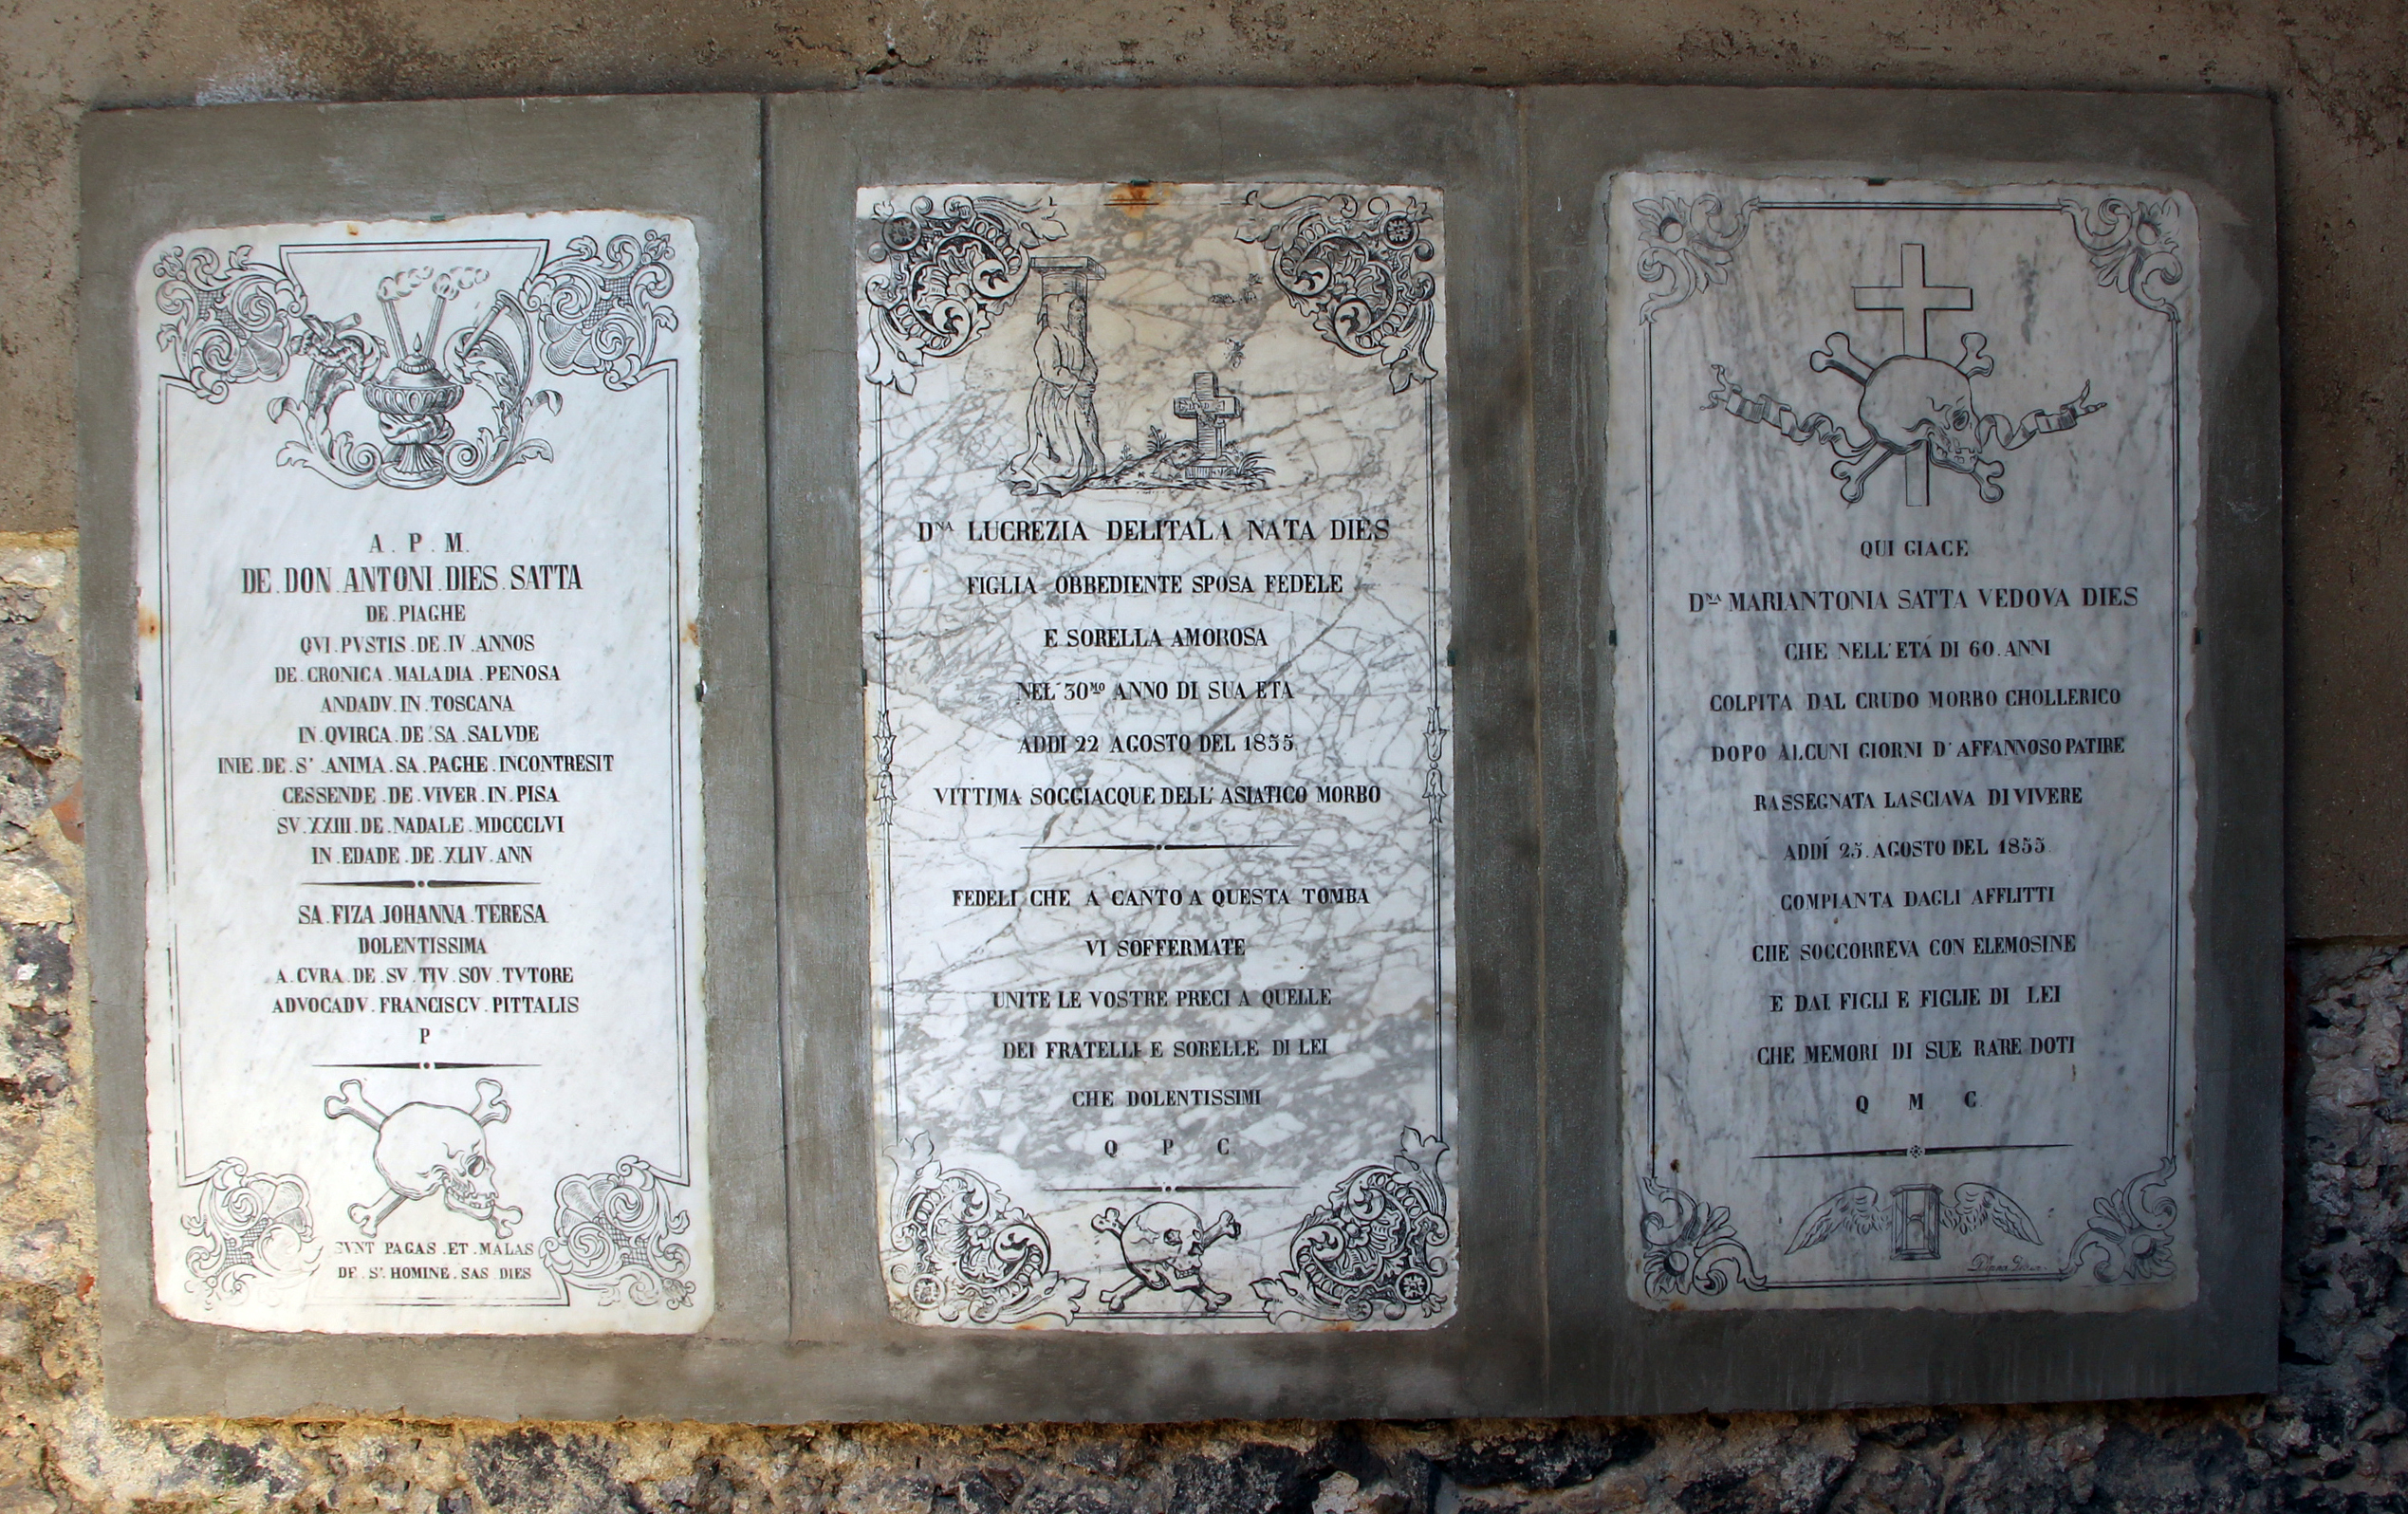 A . P . M.
DE . DON . ANTONI . DIES . SATTA
DE . PIAGHE
QVI . PVSTIS . DE . IV . ANNOS
DE . CRONICA . MALADIA . PENOSA
ANDADV . IN . TOSCANA
IN . QVIRCA . DE . SA . SALVDE
INIE . DE . S' . ANIMA . SA . PAGHE . INCONTRESIT
CESSENDE . DE . VIVER . IN . PISA
SV . XXIII . DE . NADALE . MDCCCLVI
IN . EDADE . DE . XLIV . ANN
SA . FIZA . JOHANNA . TERESA
DOLENTISSIMA
A . CVRA . DE . SV . TIV . SOV . TVTORE
ADVOCADV . FRANCISCV . PITTALIS
P
SVNT PAGAS . ET . MALAS
DE . S' . HOMINE . SAS DIES
DNA LUCREZIA DELITALA NATA DIES
FIGLIA OBBEDIENTE SPOSA FEDELE
E SORELLA AMOROSA
NEL 30MO ANNO DI SUA ETA
ADDI 22 AGOSTO DEL 1855
VITTIMA SOGGIACQUE DELL' ASIATICO MORBO
FEDELI CHE A CANTO A QUESTA TOMBA
VI SOFFERMATE
UNITE LE VOSTRE PRECI A QUELLE
DEI FRATELLI E SORELLE DI LEI
CHE DOLENTISSIMI
Q P C
QUI GIACE
DNA MARIANTONIA SATTA VEDOVA DIES
CHE NELL'ETÁ DI 60 . ANNI
COLPITA DAL CRUDO MORBO CHOLLERICO
DOPO ALCUNI GIORNI D'AFFANNOSO PATIRE
RASSEGNATA LASCIAVA DI VIVERE
ADDÍ 25 . AGOSTO DEL 1855
COMPIANTA DAGLI AFFLITTI
CHE SOCCORREVA CON ELEMOSINE
E DAI FIGLI E FIGLIE DI LEI
CHE MEMORI DI SUE RARE DOTI
Q M C